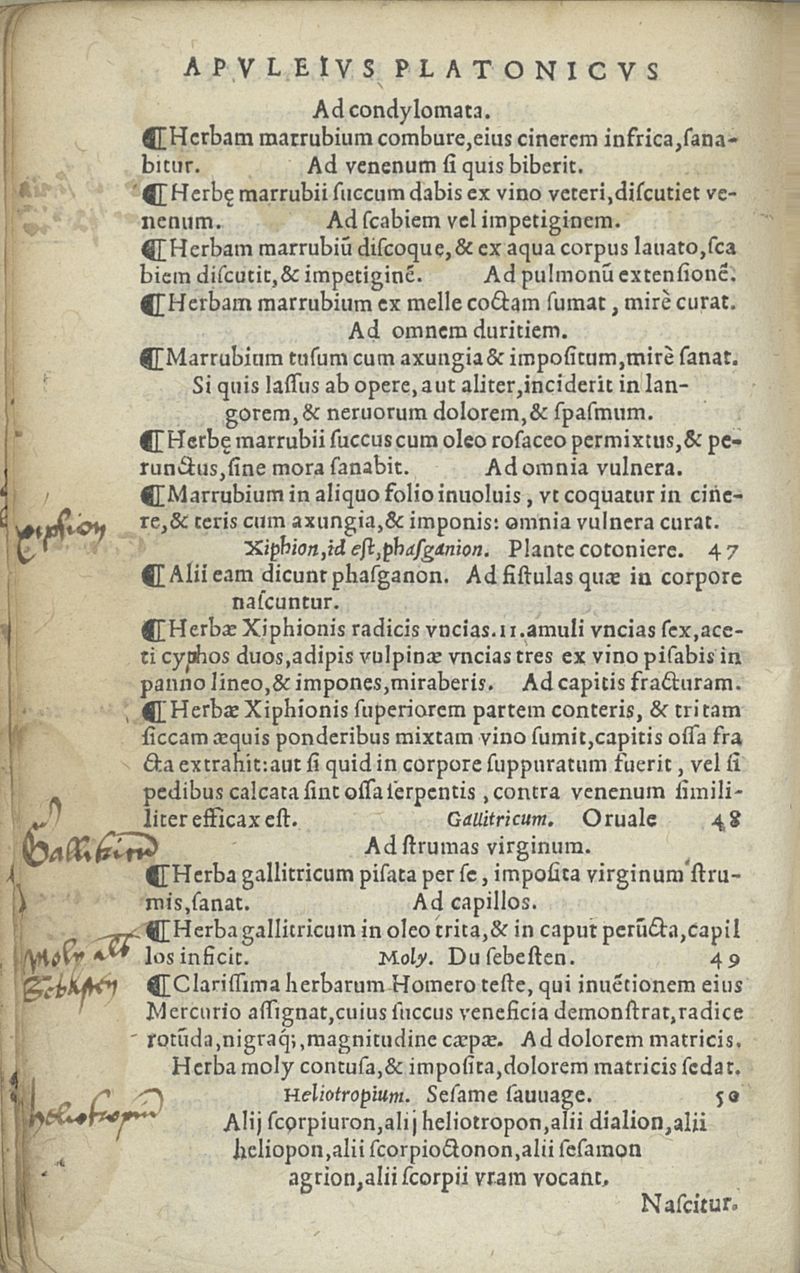 APVLEIVS PLATONICVS
Ad condylomata.
¶Herbam marrubium combure,eius cinerem infrica,ſana-
bitur. Ad venenum ſi quis biberit.
¶Herbę marrubii ſuccum dabis ex vino veteri,diſcutiet ve-
nenum. Ad ſcabiem vel impetiginem.
¶Herbam marrubiū diſcoque,& ex aqua corpus lauato,ſca
biem diſcutit,& impetiginē. Ad pulmonū extenſionē.
¶Herbam marrubium ex melle coctam ſumat, mirè curat.
Ad omnem duritiem.
¶Marrubium tuſum cum axungia & impoſitum,mirè ſanat.
Si quis laſſus ab opere, aut aliter,inciderit in lan-
gorem, & neruorum dolorem,& ſpaſmum.
¶Herbę marrubii ſuccus cum oleo roſaceo permixtus,& pe-
runctus,ſine mora ſanabit. Ad omnia vulnera.
¶Marrubium in aliquo folio inuoluis, vt coquatur in cine-
re,& teris cum axungia,& imponis: omnia vulnera curat.
xiphion
Xiphion,id eſt,phaſganion. Plante cotoniere. 47
¶Alii eam dicunt phaſganon. Ad fiſtulas quæ in corpore
naſcuntur.
¶Herbæ Xiphionis radicis vncias.11.amuli vncias ſex,ace-
ti cyphos duos,adipis vulpinæ vncias tres ex vino piſabis in
panno lineo,& impones,miraberis. Ad capitis fracturam.
¶Herbæ Xiphionis ſuperiorem partem conteris, & tritam
ſiccam æquis ponderibus mixtam vino ſumit,capitis oſſa fra
cta extrahit:aut ſi quid in corpore ſuppuratum fuerit, vel ſi
pedibus calcata ſint oſſa ſerpentis, contra venenum ſimili-
liter efficax eſt. Gallitricum. Oruale 48
Ad ſtrumas virginum.
¶Herba gallitricum piſata per ſe, impoſita virginum ſtru-
mis,ſanat. Ad capillos.
¶Herba gallitricum in oleo trita,& in caput perūcta,capil
Moly
los inficit. Moly. Du ſebeſten. 49
¶Clariſſima herbarum Homero teſte, qui inuētionem eius
Mercurio aſſignat,cuius ſuccus veneficia demonſtrat,radice
rotūda,nigraq́;,magnitudine cæpæ. Ad dolorem matricis.
Herba moly contuſa,& impoſita,dolorem matricis ſedat.
Heliotropium. Seſame ſauuage. 50
Alij ſcorpiuron,alij heliotropon,alii dialion,alii
heliopon,alii ſcorpioctonon,alii ſeſamon
agrion,alii ſcorpii vram vocant.
Naſcitur.